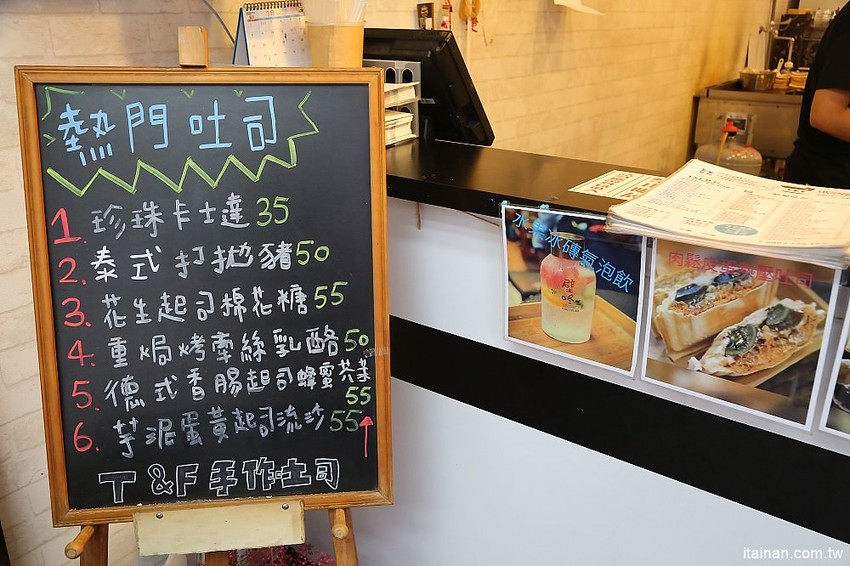 熱門吐司
1. 珍珠卡士達 35
2. 泰式打拋豬 50
3. 花生起司棉花糖 55
4. 重焗烤牽絲乳酪 50
5. 德式香腸起司蜂蜜芥茉
55
6. 芋泥蛋黃起司流沙 55
T&F手作吐司
水果冰磚氣泡飲
肉鬆皮蛋
吐司
itainan.com.tw